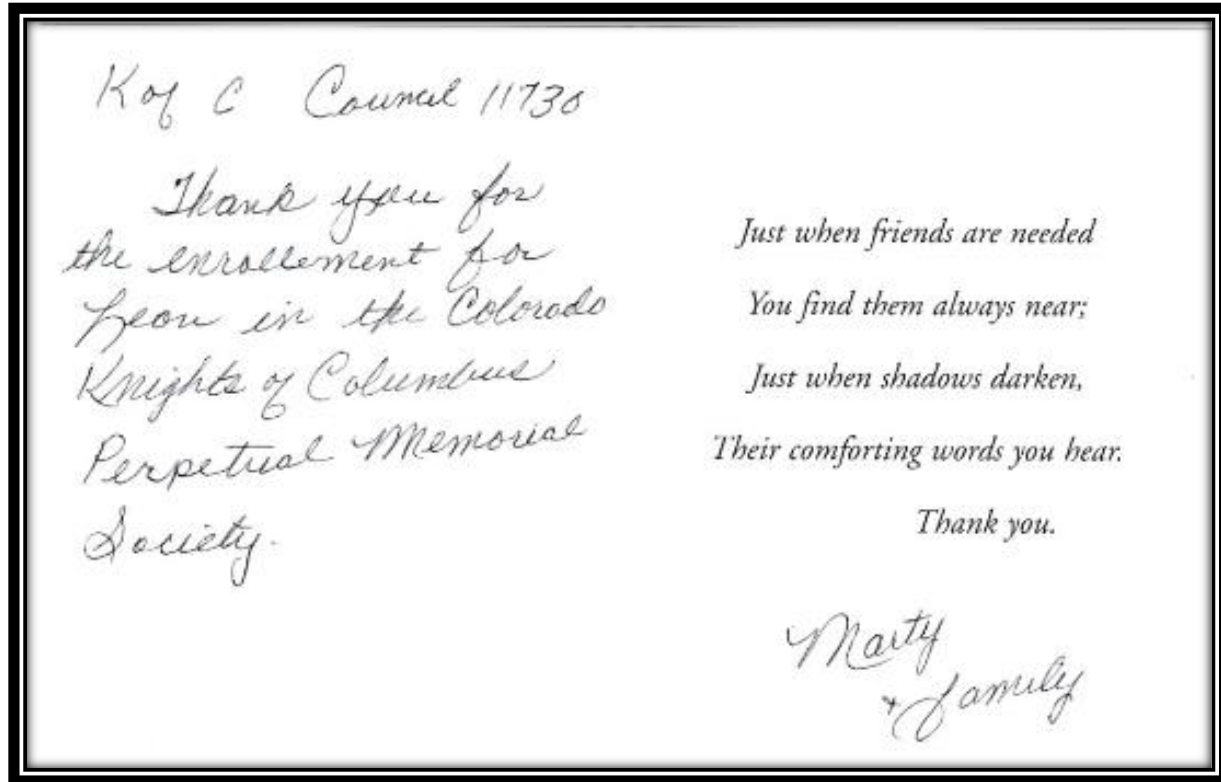 K of C Council 11730
Thank you for
the enrollement for
Leon in the Colorado
Knights of Columbus
Perpetual Memorial
Society.
Just when friends are needed
You find them always near;
Just when shadows darken,
Their comforting words you hear.
Thank you.
Marty
+ family